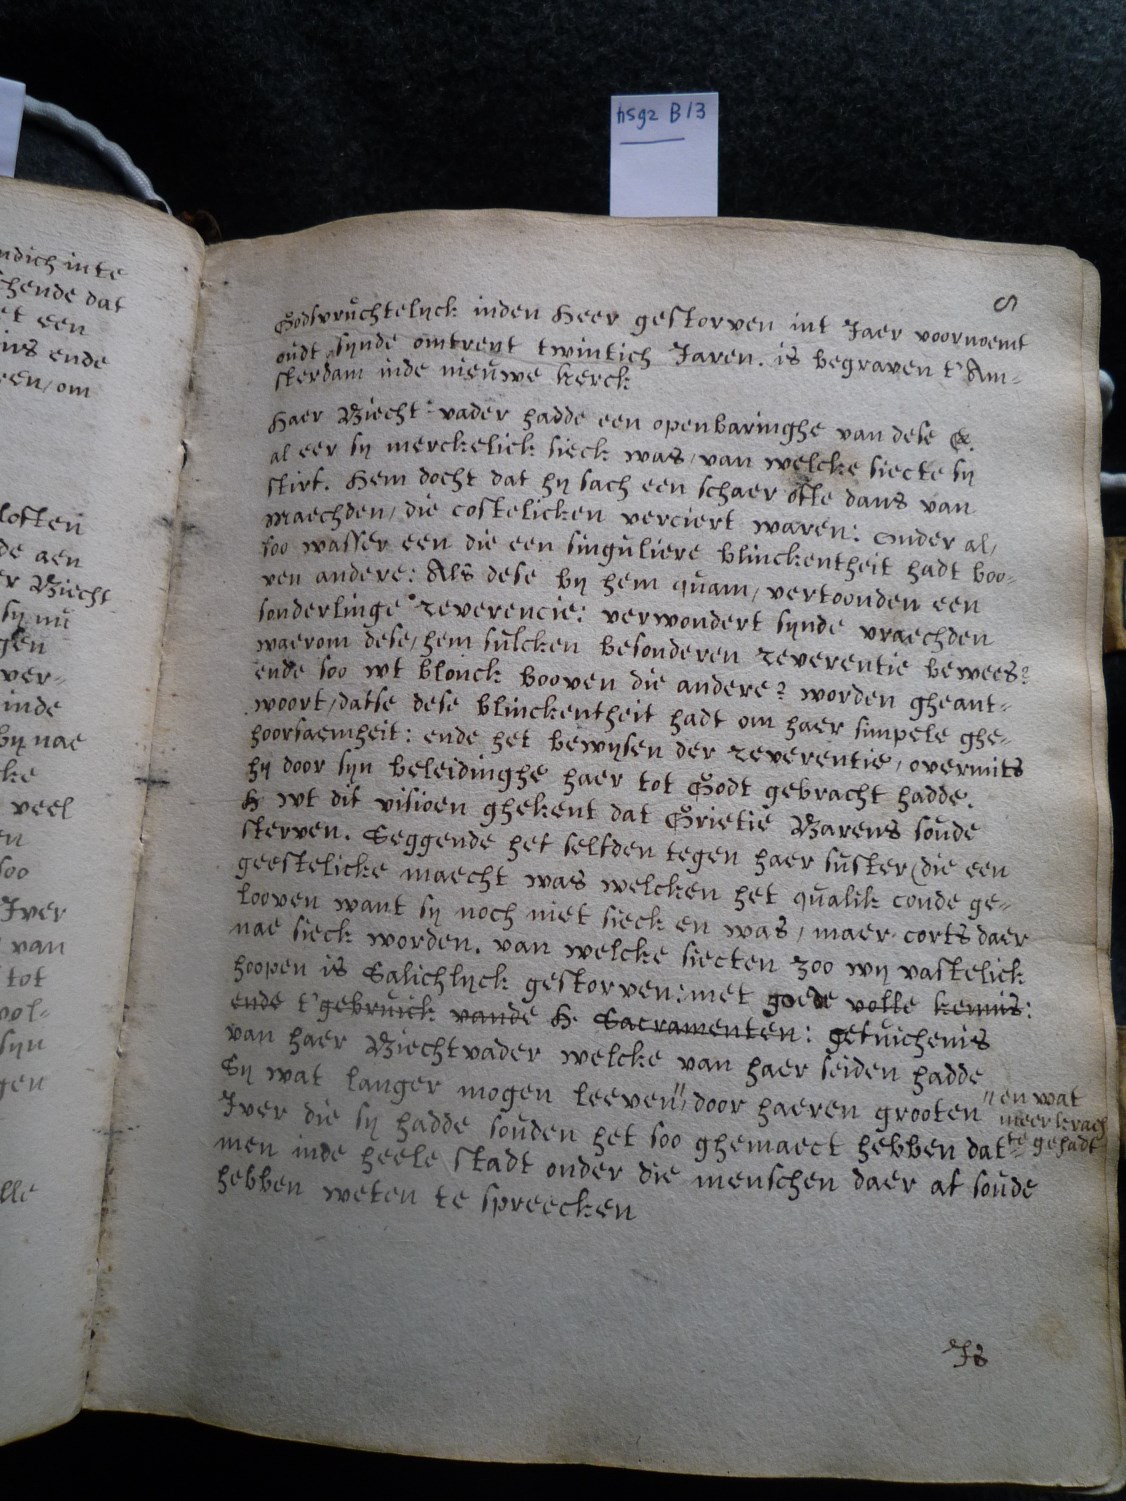 hsgz B13
ndich inte
chende dat
et een
irs ende
een, om
loften
de aen
er Biecht
sy nu
gen
ver-
inde
by nae
ke
veel
en
soo
Iver
van
tot
vol-
syn
gen
lle
5
Godtvruchtelyck inden Heer gestorven int Jaer voornoemt
oudt synde omtrent twintich Jaren. is begraven t'Am-
sterdam inde nieuwe kerck
Haer Biecht-vader hadde een openbaringhe van dese
al eer sy merckelick sieck was, van welcke siecte sy
stirf. Hem docht dat hy sach een schaer ofte dans van
Maechden, die costelicken verciert waren: Onder al,
soo wasser een die een singuliere blinckentheit hadt boo-
ven andere: Als dese by hem quam, vertoonden een
sonderlinge reverencie: verwondert synde vraechden
waerom dese, hem sulcken besonderen reverentie bewees?
ende soo wt blonck booven die andere? worden gheant-
woort, datse dese blinckentheit hadt om haer simpele ghe-
hoorsaemheit: ende het bewysen der reverentie, overmits
hy door syn beleidinghe haer tot Godt gebracht hadde.
H wt dit visioen ghekent dat Grietie Barens soude
sterven. Seggende het selfden tegen haer suster (die een
geestelicke maecht was welcken het qualik conde ge-
looven want sy noch niet sieck en was, maer corts daer
nae sieck worden. van welcke siecten zoo wy vastelick
hoopen is Salichlyck gestorven: met goede volle kennis:
ende t'gebruick vande H. Sacramenten: getuichenis
van haer Biechtvader welcke van haer seiden hadde
Sy wat langer mogen leeven", door haeren grooten
" en wat
meer krach
te gehadt
Iver die sy hadde souden het soo ghemaect hebben dat
men inde heele stadt onder die menschen daer af soude
hebben weten te spreecken
Is